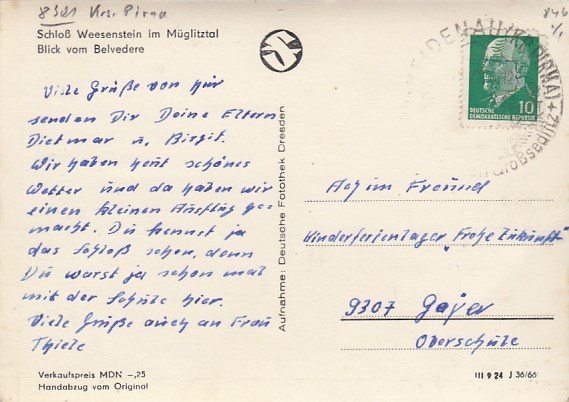 8321 Krs. Pirna
846
Schloß Weesenstein im Müglitztal
Blick vom Belvedere
Viele Grüße von hir
senden Dir Deine Eltern
Dietmar u. Birgit.
Wir haben heut schönes
Wetter und da haben wir
einen kleinen Ausflug ge-
macht. Du kennst ja
das Schloß schon, denn
Du warst ja schon mal
mit der Schule hier.
Viele Grüße auch an Frau
Thiele
Verkaufspreis MDN –,25
Handabzug vom Original
Aufnahme: Deutsche Fotothek Dresden
HEIDENAU (KR PIRNA)
Großsedlitz
10
DEUTSCHE
DEMOKRATISCHE REPUBLIK
Achim Freund
Kinderferienlager "Frohe Zukunft"
9307 Geyer
Oberschule
III 9 24 J 36/66